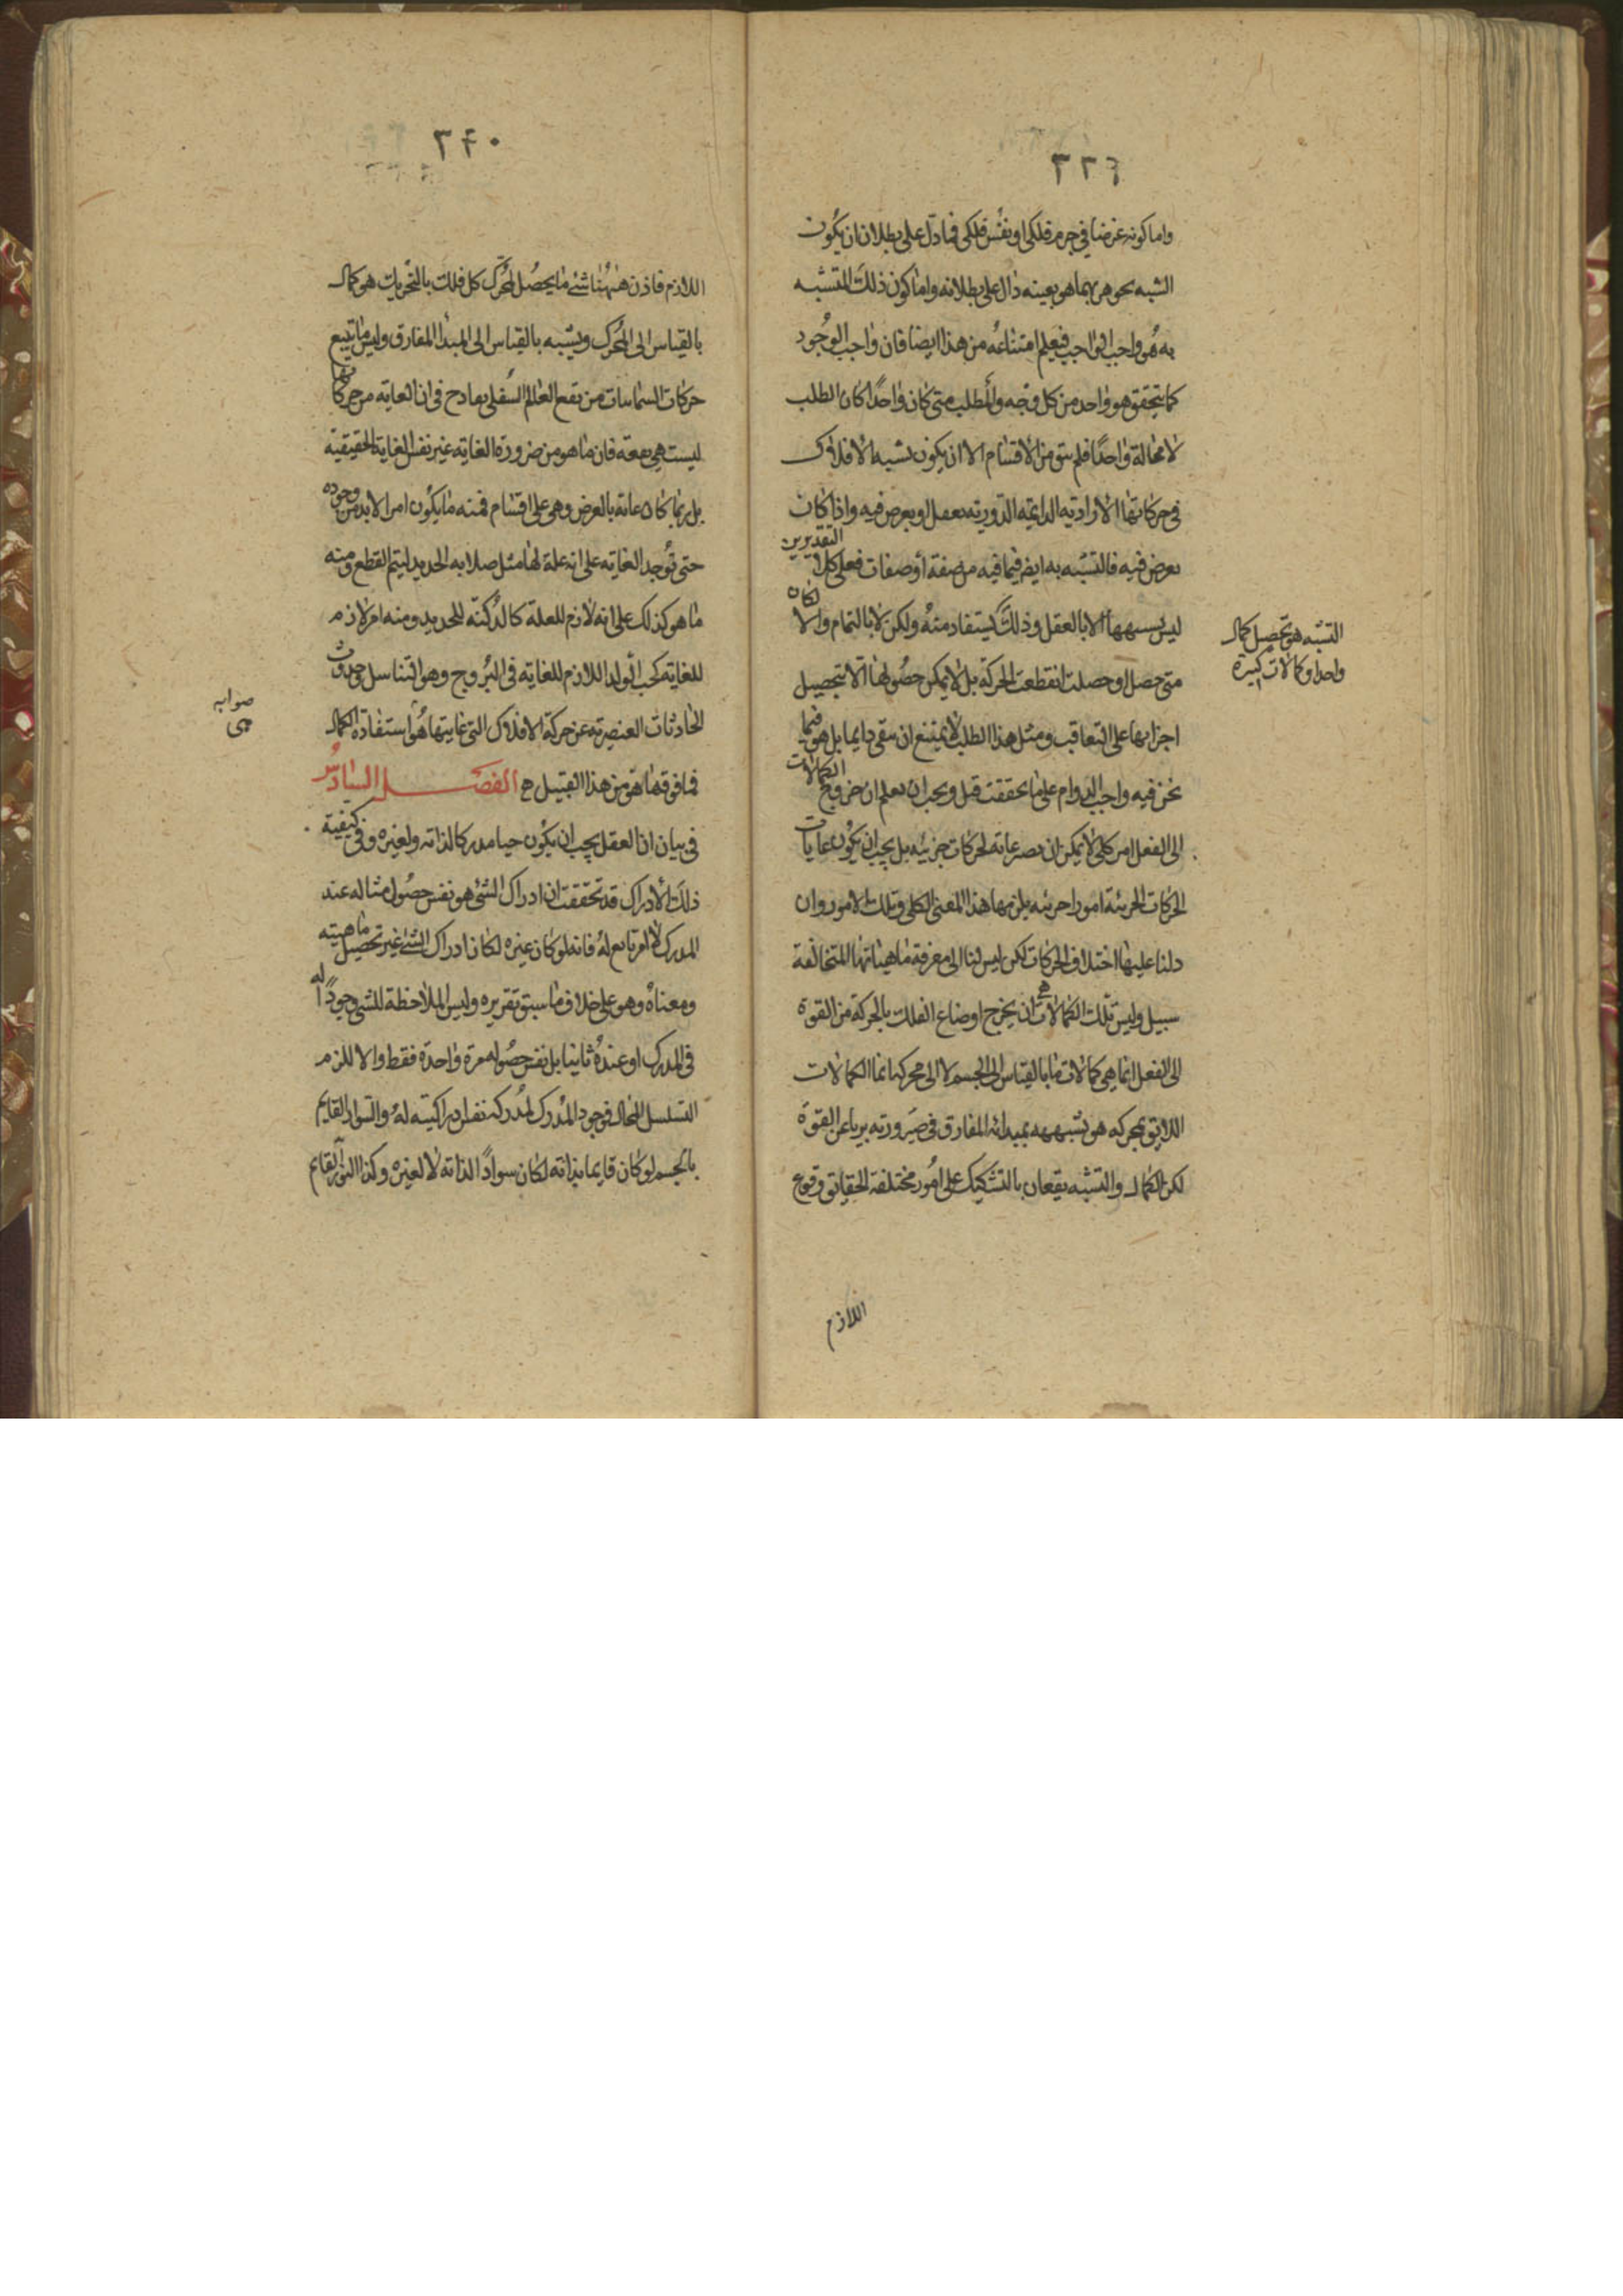 ٣٣٩
واما كونه عرضا في جرم فلكي او نفس فلكي فما دل على بطلان ان يكون
الشبه بجوهر بما هي بعينه دال على بطلانه واما كون ذلك المتشبه
به هو واجب الواجب فيعلم امتناعه من هذا ايضا فان واجب الوجود
كما تحقق هو واحد من كل وجه والمطلب متى كان واحدا كان الطلب
لا محالة واحدا فلم يبق من الاقسام الا ان يكون تشبه الافلاك
في حركاتها الارادية الدايمة الدورية بعقل او بعرض فيه واذا كان
بعرض فيه فالتشبه به ايضا فيما فيه من صفة أو صفات فعلى كل التقديرين
ليس تشبهها الا بالعقل وذلك يستفاد منه ولكن لا بالتمام والا لكان
متى حصل او حصلت انقطعت الحركة بل لا يمكن حصولها الا بتحصيل
اجزايها على التعاقب ومثل هذا الطلب لا يمتنع ان يبقى دايما بل هو فيما
نحن فيه واجب الدوام على ما تحققت قبل ويجب ان تعلم ان خروج الكمالات
الى الفعل امر كلي لا يمكن ان يصير غاية لحركات جزئية بل يجب ان يكون غايات
الحركات الجزئية امورا جزئية يلزمها هذا المعنى الكلي وتلك الامور وان
دلنا عليها اختلاف الحركات لكن ليس لنا الى معرفة ماهياتها المتخالفة
سبيل وليس تلك الكمالات هي ان يخرج اوضاع الفلك بالحركة من القوة
الى الفعل انما هي كمالات ما بالقياس الى الجسم لا الى محركه انما الكمالات
اللايق بمحركه هو تشبهه بمبدائه المفارق في صيرورته بريا عن القوة
لكن الكمال والتشبه يقعان بالتشكيك على امور مختلفة الحقايق وقوع
اللازم
التشبه هو تحصيل كمال
واحد او كمالات كثيرة
٣٤٠
اللازم فاذن ههنا شئ ما يحصل لمحرك كل فلك بالتحريك هو كمال
بالقياس الى المحرك وتشبه بالقياس الى المبدا المفارق وليس ما يتبع
حركات السماويات من نفع العالم السفلي بقادح في ان الغاية من حركاتها
ليست هي نفعه فان ما هو من ضرورة الغاية غير نفس الغاية الحقيقية
بل ربما كان غاية بالعرض وهي على اقسام فمنه ما يكون امرا لا بد من وجوده
حتى توجد الغاية على انه علة لها مثل صلابة الحديد ليتم القطع ومنه
ما هو كذلك على انه لازم للعلة كالدكنة للحديد ومنه امر لازم
للغاية كحب الولد اللازم للغاية في التزوج وهو التناسل وحدوث
الحادثات العنصرية عن حركة الافلاك التي غايتها هو استفادة الكمال
فما فوقها هو من هذا القبيل الفصل السادس
في بيان ان العقل يجب ان يكون حيا مدركا لذاته ولغيره وفي كيفية
ذلك الادراك قد تحققت ان ادراك الشئ هو نفس حصول مثاله عند
المدرك لا امر تابع له فانه لو كان غيره لكان ادراك الشئ غير تحصيل ماهيته
ومعناه وهو على خلاف ما سبق تقريره وليس الملاحظة للشئ وجودا له
في المدرك او عنده ثانيا بل نفس حصوله مرة واحدة فقط والا للزم
التسلسل المحال فوجود المدرك لمدركه نفس دراكيته له والسواد القايم
بالجسم لو كان قايما بذاته لكان سوادا لذاته لا لغيره وكذا النور القايم
صوابه